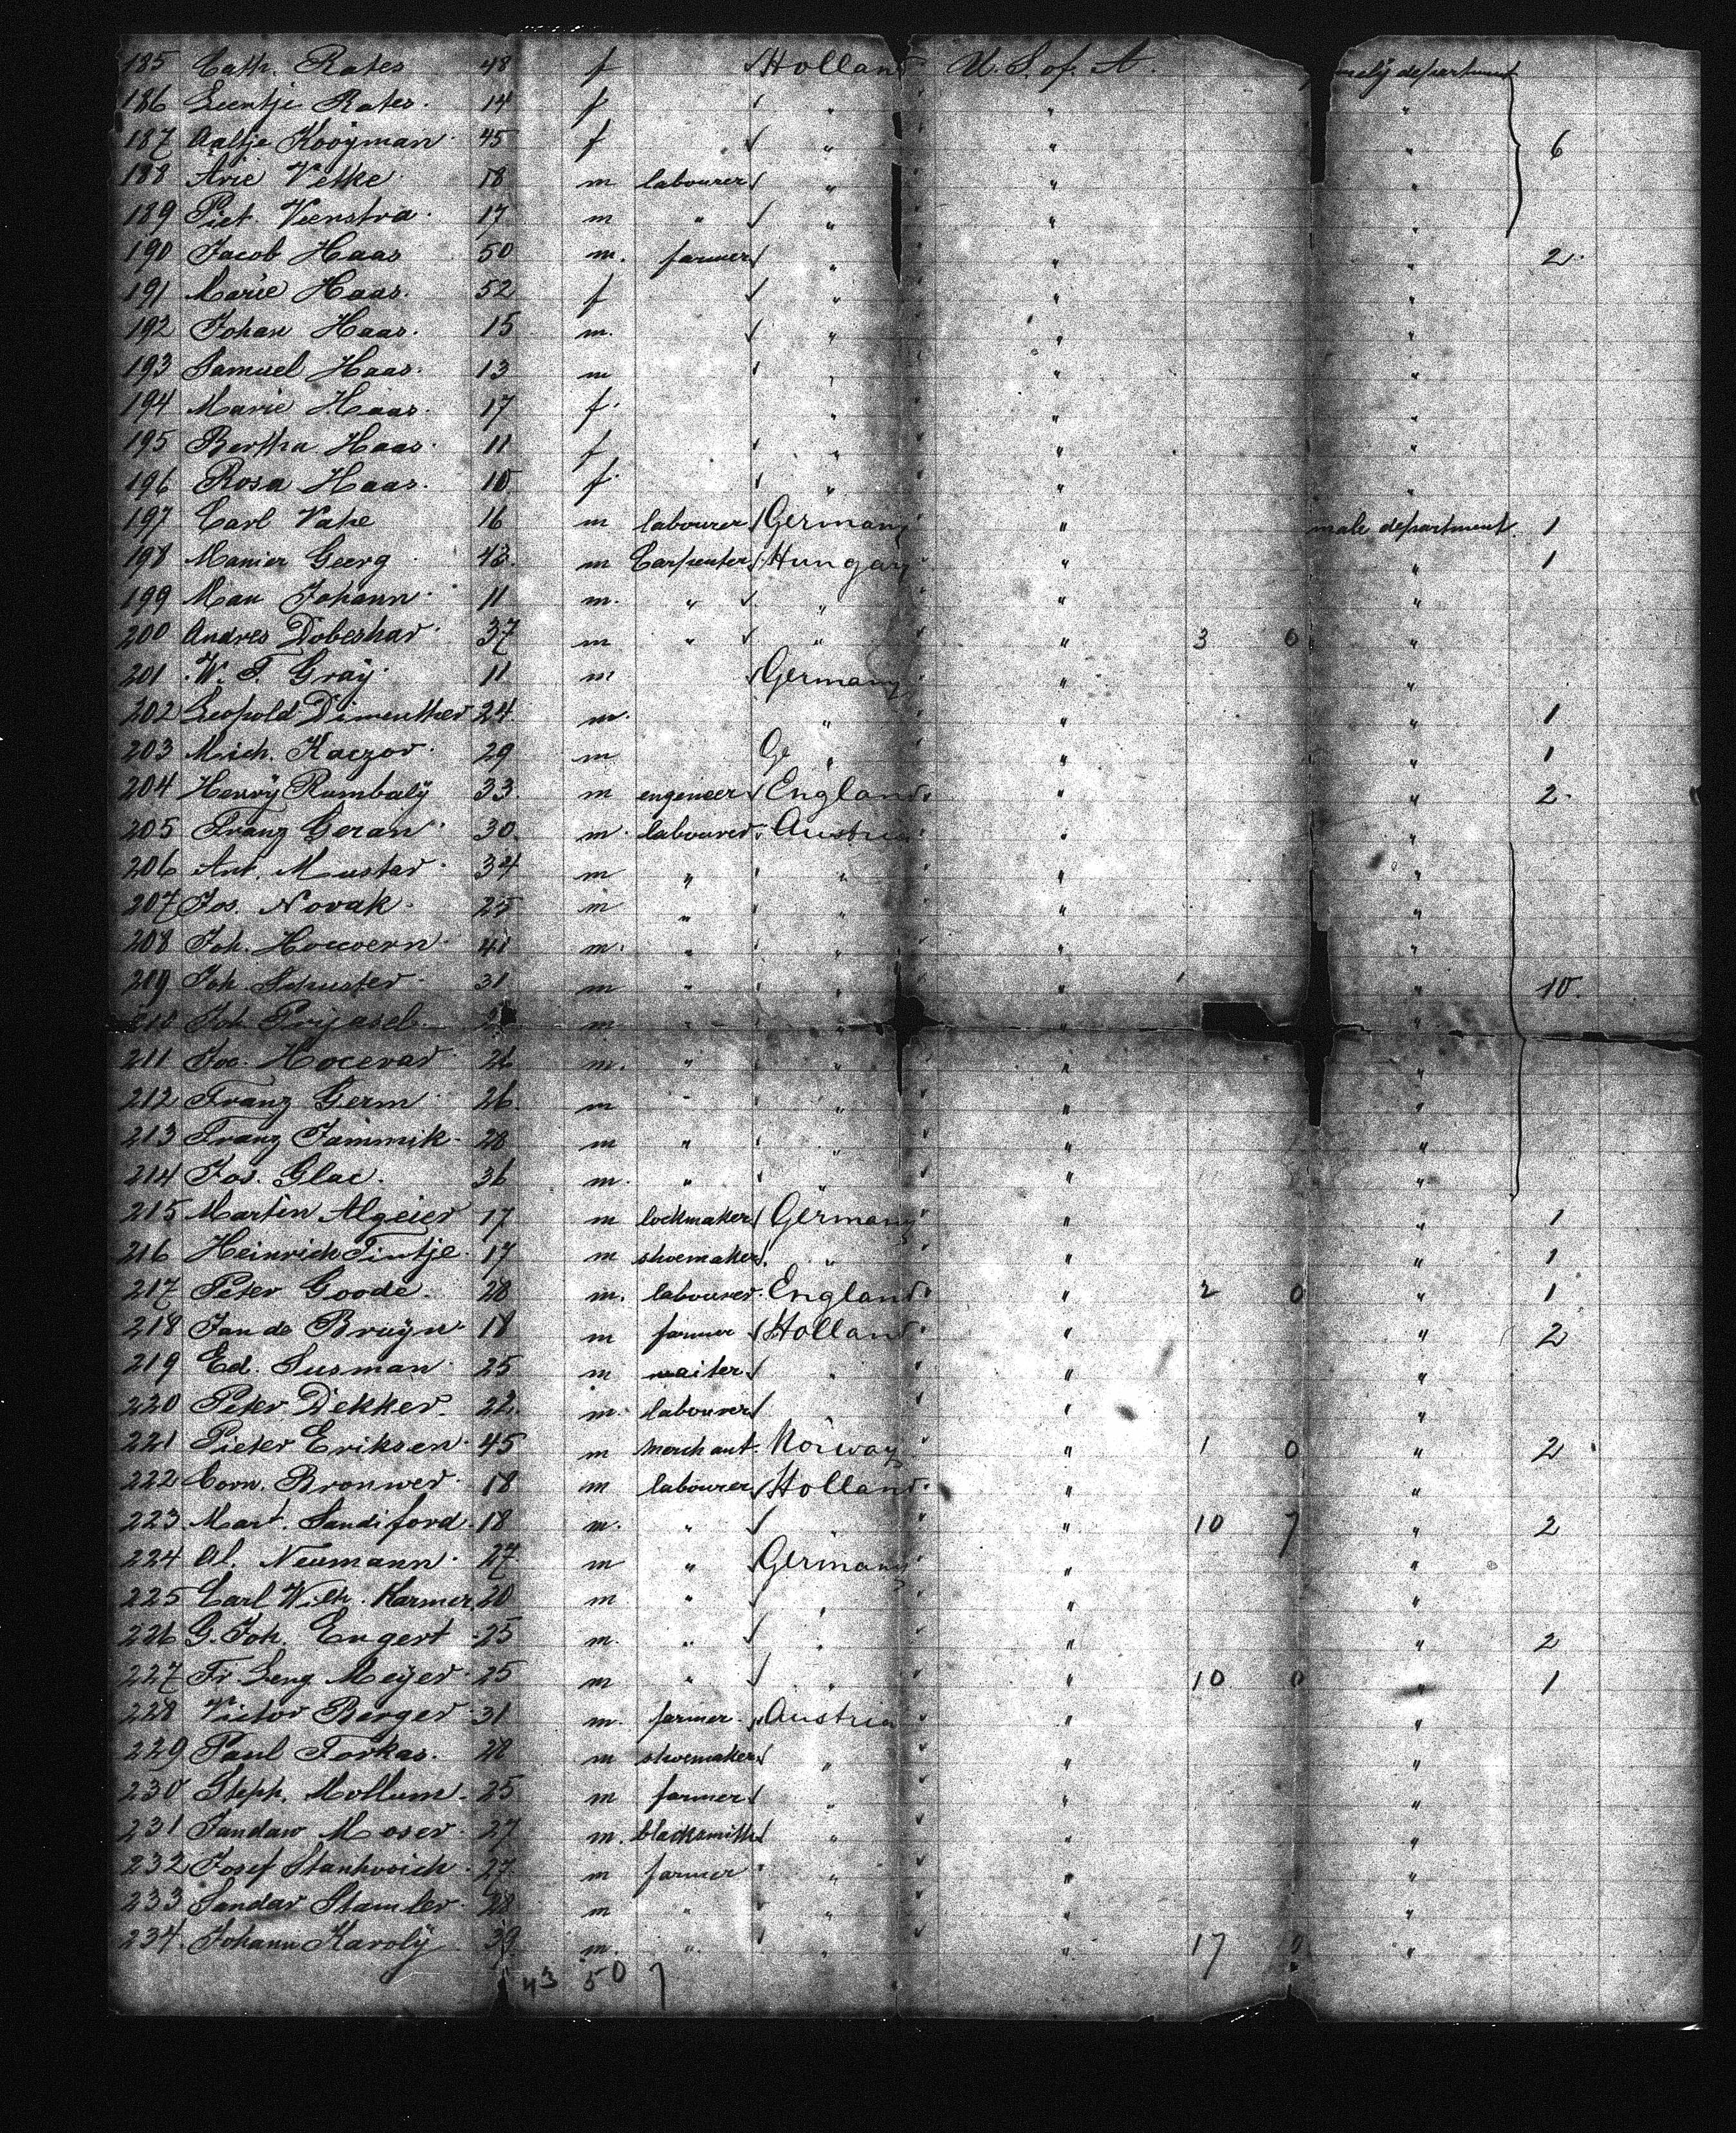 185 Cath. Rates 48 f Holland U. S. of. A. mily department
186 Leentje Rates. 14 f " " "
187 Aaltje Kooyman 45 f " " " 6
188 Arie Vetke 18 m labourer " " "
189 Piet. Veenstra 17 m " " " "
190 Jacob Haas 50 m. farmer " " " 2
191 Marie Haas. 52 f " " "
192 Johan Haas. 15 m. " " "
193 Samuel Haas. 13 m " " "
194 Marie Haas. 17 f. " " "
195 Bertha Haas 11 f " " "
196 Rosa Haas. 10 f. " " "
197 Carl Vahe 16 m labourer Germany " male department. 1
198 Manier Georg 43. m Carpenter Hungary " " 1
199 Mau Johann 11 m. " " " "
200 Andres Dobeshar 37 m " " " 3 0 "
201 W. F. Gray 11 m Germany " "
202 Leopold Dimenther 24. m. " " " 1
203 Mich. Kaczor 29 m Ge " " " 1
204 Henry Rumbaly 33. m engeneer England " " 2
205 Franz Geran 30. m. labourer Austria " "
206 Ant. Muster 34 m " " " "
207 Jos. Novak 25 m " " " "
208 Joh. 41 m. " " " "
209 Joh Schuster 31 m " " " " 10.
210 Joh m " " "
211 Jos. Hocevar 26 m. " " " "
212 Franz Germ 26. m " " " "
213 Franz Jammik 28 m " " " "
214 Jos. Glac. 36 m. " " " "
215 Martin Algeier 17 m lockmaker Germany " " 1
216 Heinrich Tintje 17 m shoemaker " " " 1
217 Peter Goode. 28 m. labourer England " 2 0 " 1
218 Jan de Bruyn 18 m farmer Holland " " 2
219 Ed. Susman 25 m waiter " " "
220 Peter Dekker 22. m. labourer " "
221 Pieter Eriksen 45 m merchant Norway " 1 0 " 2
222 Corn. Bronwer 18 m labourer Holland " "
223 Mart. Sandiford 18 m. " " 10 7 " 2
224 Al. Neumann 27 m " Germany " "
225 Carl Wilh. Karmer 20 m " " " "
226 G. Joh. Engert 25 m. " " " " 2
227 Fr. Leng Meyer 25 m " " " 10 0 " 1
228 Victor Berger 31 m. farmer Austria " "
229 Paul Forkas. 28 m shoemaker " " "
230 Steph. Mollum 25 m farmer " " "
231 Sandaw Moser 27 m. blacksmith " " "
232 Josef Stankovich 27. m farmer " " "
233 Sandar Stamler 28 m " " " "
234. Johann Karoly 39 m. " " " 17 0 "
43 50 7